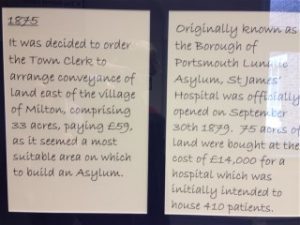 1875
It was decided to order
the Town Clerk to
arrange conveyance of
land east of the village
of Milton, comprising
33 acres, paying £59,
as it seemed a most
suitable area on which
to build an Asylum.
Originally known as
the Borough of
Portsmouth Lunatic
Asylum, St James'
Hospital was officially
opened on September
30th 1879. 75 acres of
land were bought at the
cost of £14,000 for a
hospital which was
initially intended to
house 410 patients.